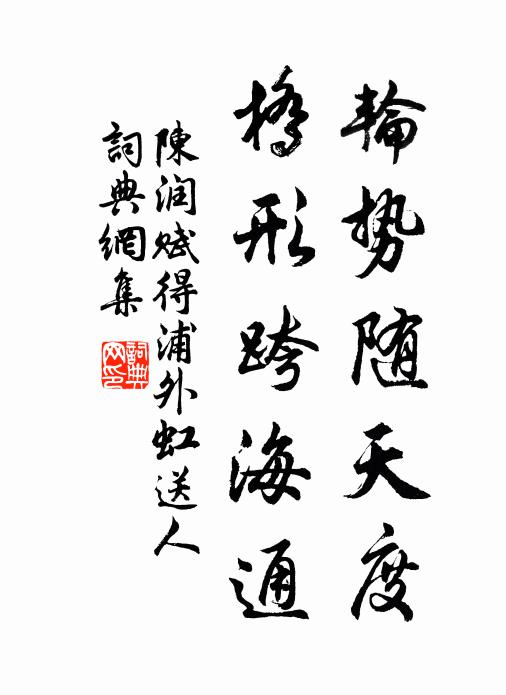 輪势随天度
橋形跨海通
陳润赋得浦外虹送人
詞典網集
詞典網印